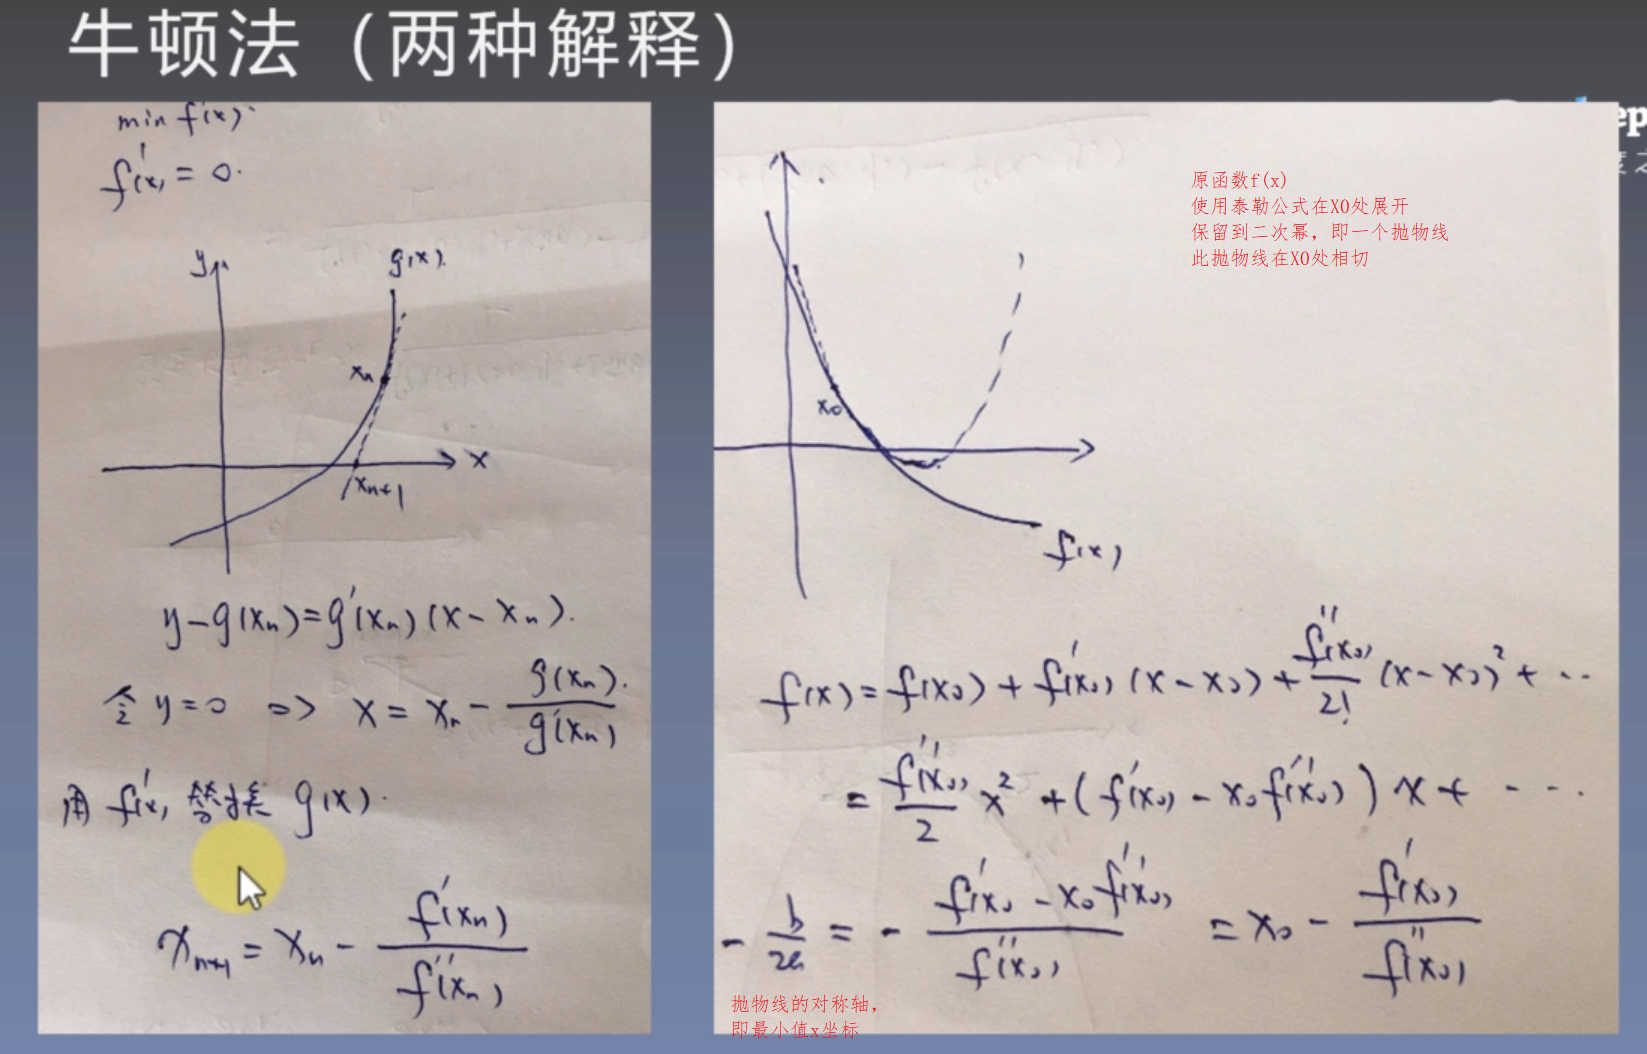 牛顿法（两种解释）
min f(x)
f'(x) = 0.
y
g(x).
xn
x
xn+1
y-g(xn)=g'(xn)(x-xn).
令 y=0 => x = xn - g(xn)/g'(xn)
用 f'(x) 替换 g(x).
xn+1 = xn - f'(xn)/f''(xn)
ep
度之
原函数f(x)
使用泰勒公式在X0处展开
保留到二次幂，即一个抛物线
此抛物线在X0处相切
x0
f(x)
f(x)=f(x0)+f'(x0)(x-x0)+f''(x0)/2!(x-x0)²+ ...
= f''(x0)/2 x² +(f'(x0) - x0f''(x0)) x + ...
- b/2a = - (f'(x0) - x0f''(x0))/f''(x0) = x0 - f'(x0)/f''(x0)
抛物线的对称轴，
即最小值x坐标